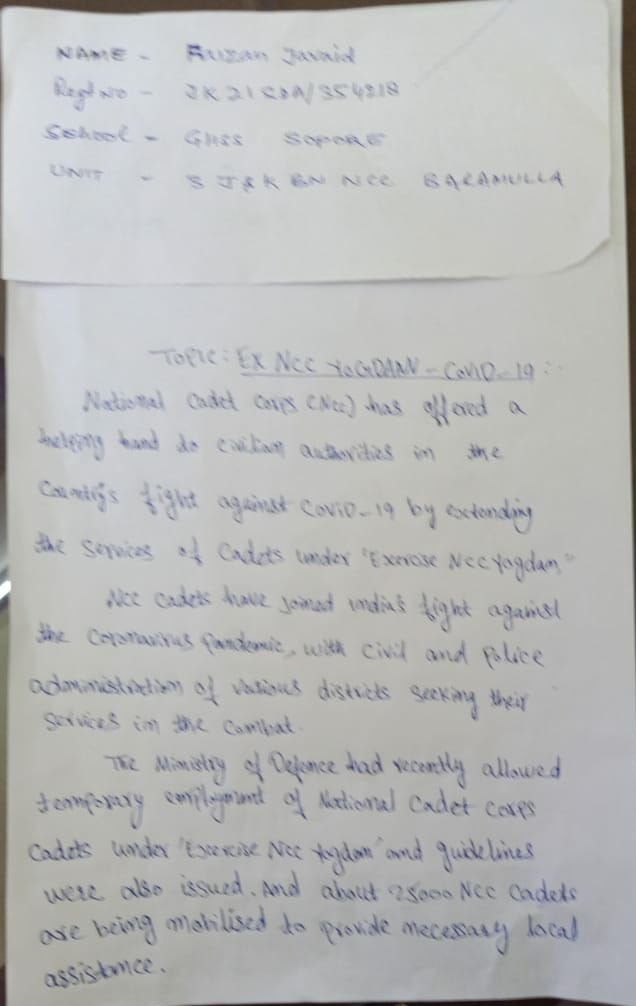 NAME - Faizan Javaid
Regt No - JK21SDA/354218
School - GHSS SOPORE
UNIT - 3 J&K BN NCC BARAMULLA
TOPIC: EX NCC YOGDAAN - COVID-19:-
National Cadet Corps (NCC) has offered a
helping hand to civilian authorities in the
Country's fight against COVID-19 by extending
the services of Cadets under "Exercise NCC Yogdam,"
NCC cadets have joined india's fight against
the coronavirus Pandemic, with civil and police
administration of various districts seeking their
services in the combat.
The Ministry of Defence had recently allowed
temporary employment of National Cadet Corps
Cadets under 'Excercise Ncc Yogdam' and guidelines
were also issued. And about 25000 NCC Cadets
are being mobilised to provide necessary local
assistance.